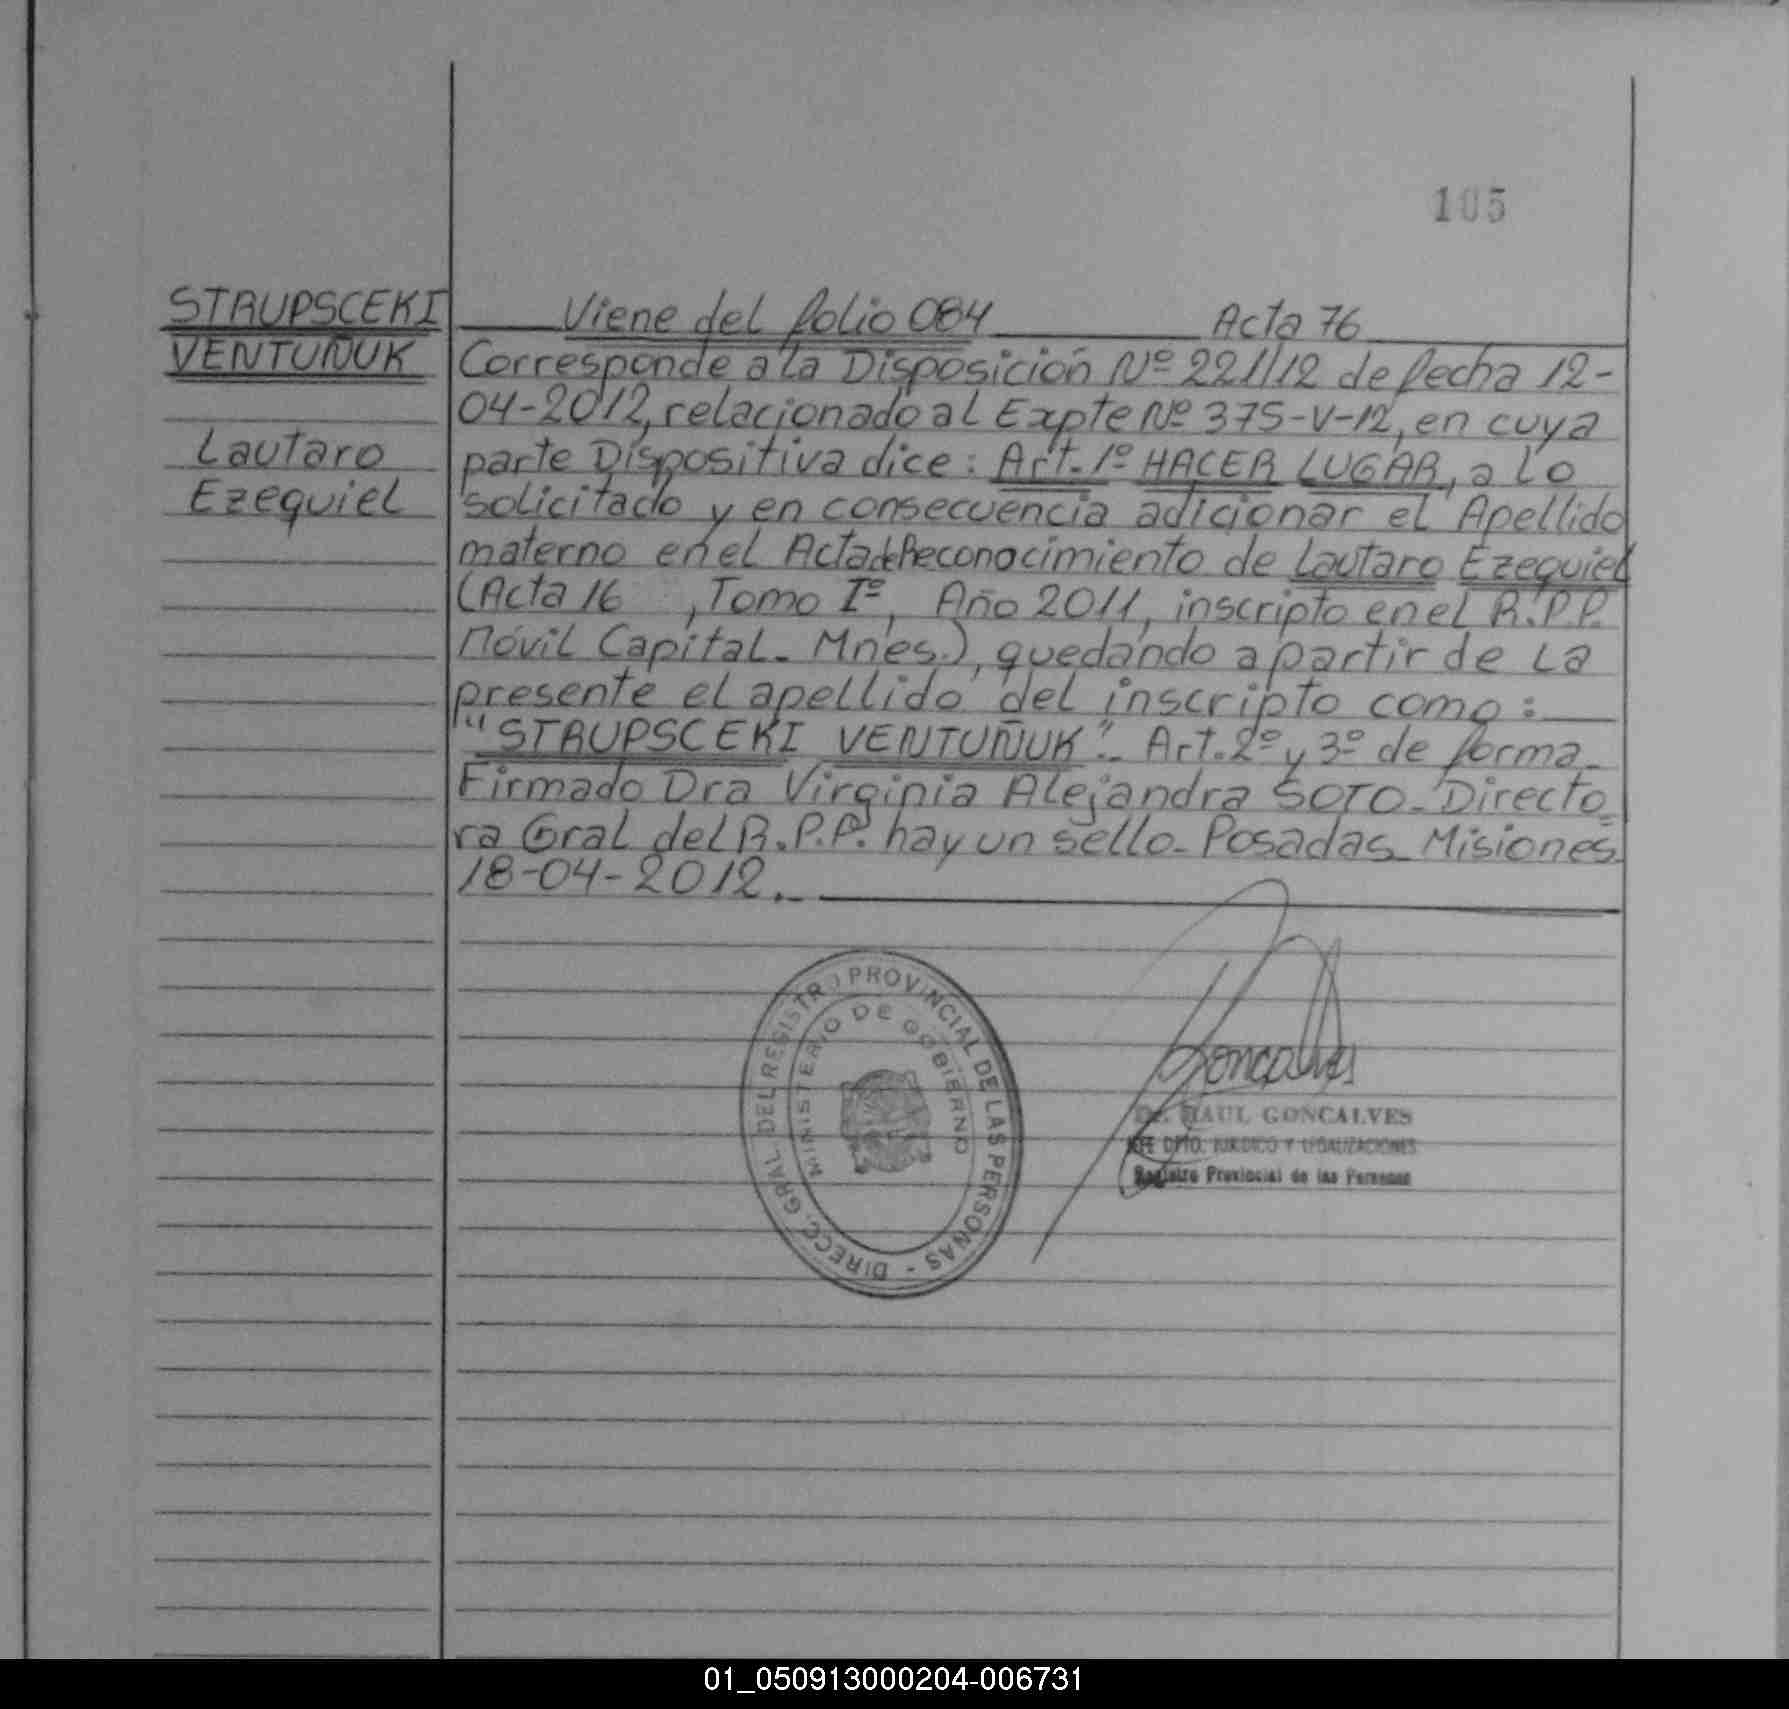 105
STRUPSCEKI
VENTUÑUK
Lautaro
Ezequiel
Viene del folio 084 Acta 76
Corresponde a la Disposición Nº 221/12 de fecha 12-
04-2012, relacionado al Expte Nº 375-V-12, en cuya
parte Dispositiva dice: Art. 1º HACER LUGAR, a lo
solicitado y en consecuencia adicionar el Apellido
materno en el Acta de Reconocimiento de Lautaro Ezequiel
(Acta 16 , Tomo Iº, Año 2011, inscripto en el R.P.P.
Móvil Capital - Mnes.), quedando a partir de la
presente el apellido del inscripto como:
"STRUPSCEKI VENTUÑUK".- Art. 2º y 3º de forma-
Firmado Dra Virginia Alejandra SOTO - Directo
ra Gral del R.P.P. hay un sello - Posadas - Misiones
18-04-2012.-
DIRECC. GRAL. DEL REGISTRO PROVINCIAL DE LAS PERSONAS -
MINISTERIO DE GOBIERNO
Goncalves
Dr. RAUL GONCALVES
JEFE DPTO. JURIDICO Y LEGALIZACIONES
Registro Provincial de las Personas
01_050913000204-006731